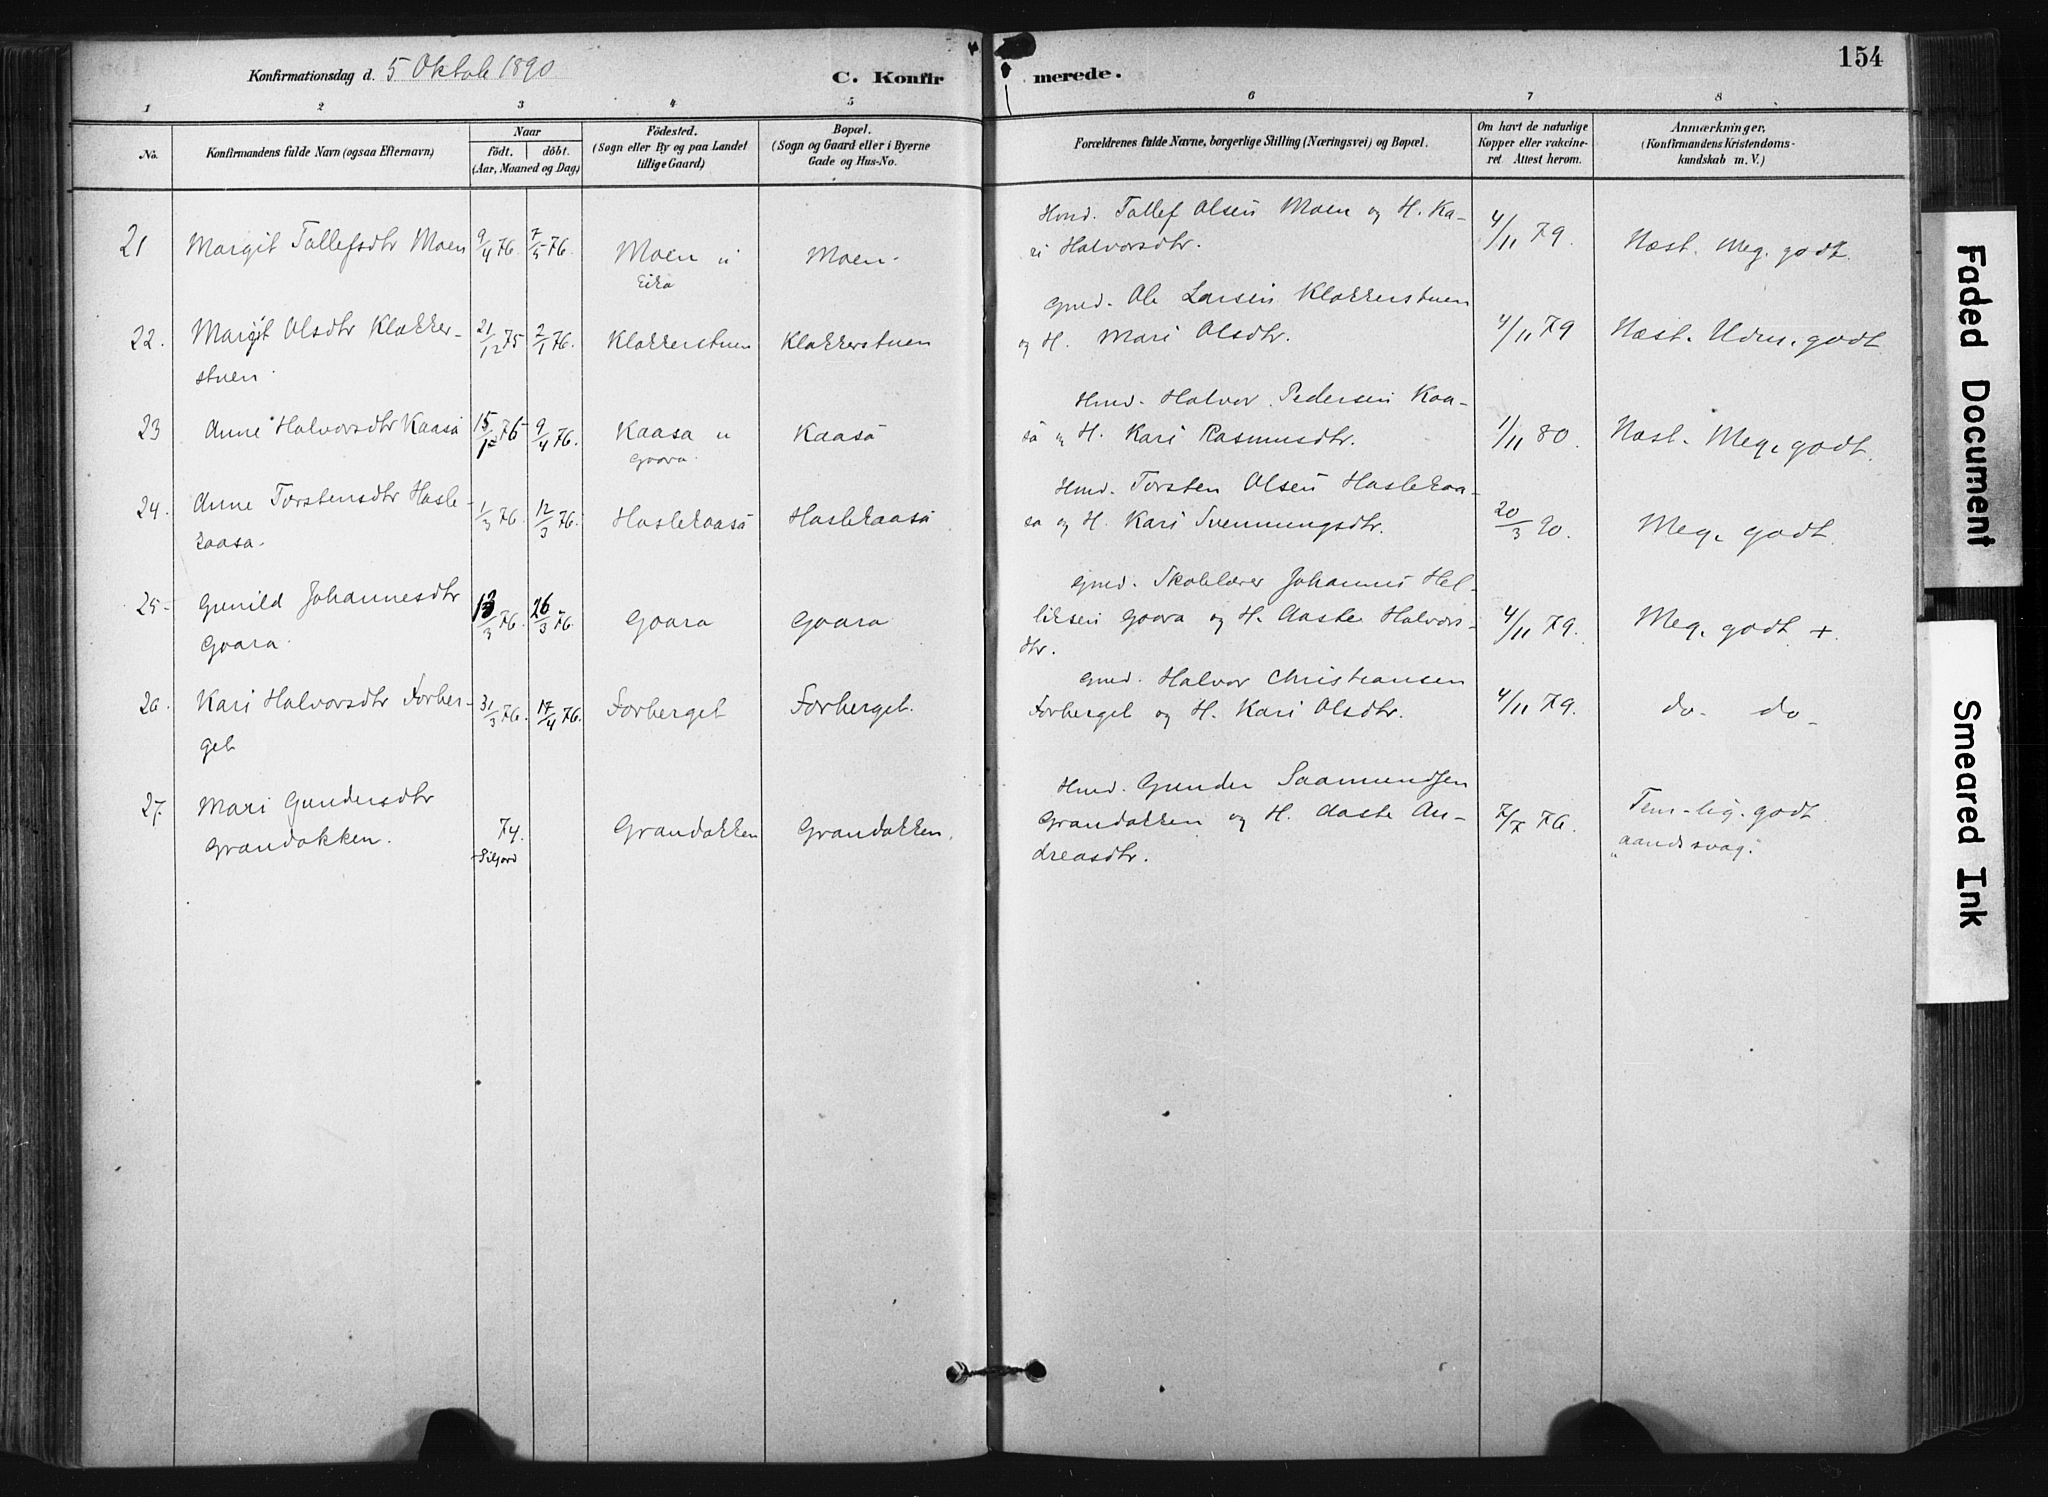 Konfirmationsdag d. 5 Oktob 1890
C. Konfir merede. 154
1 2 3 4 5 6 7 8
No.
Konfirmandens fulde Navn (ogsaa Efternavn)
Naar
födt. döbt.
(Aar, Maaned og Dag)
Födested.
(Sogn eller By og paa Landet
tillige Gaard)
Bopæl.
(Sogn og Gaard eller i Byerne
Gade og Hus-No.
Forældrenes fulde Navne, borgerlige Stilling (Næringsvei) og Bopæl.
Om havt de naturlige
Kopper eller vakcine-
ret Attest herom.
Anmærkninger,
(Konfirmandens Kristendoms-
kundskab m. V.)
21 Margit Tallefsdtr Moen 9/4 76. 7/5 76. Moen u Moen.
Eika
Hmd. Tallef Olsen Moen og H. Ka-
ri Halvorsdtr. 4/11 79. Næst. Meg. godt.
22. Margit Olsdtr Klokker- 21/12 75 2/1 76. Klokkerstuen Klokkerstuen
stuen.
Gmd. Ole Larsen Klokkerstuen
og H. Mari Olsdtr. 4/11 79 Næst. Udm. godt
23 Anne Halvorsdtr Kaasa 76 9/4 76. Kaasa u Kaasa
Goara.
Hmd. Halvor Pedersen Kaa-
sa og H. Kari Rasmusdtr. 1/11 80. Næst. Meg. godt.
24. Anne Torstensdtr Hasle- 1/3 76. 12/3 76. Haslekaasa Haslekaasa
kaasa.
Hmd. Torsten Olsen Haslekaa-
sa og H. Kari Svennungsdtr. 20/3 90. Meg. godt.
25- Gunild Johannesdtr 76. 26/3 76. Goara Goara
Goara.
Gmd. Skolelærer Johannes Hel-
liksen Goara og H. Aaste Halvors-
dtr. 4/11 79. Meg. godt +.
26. Kari Halvorsdtr Forber- 31/3 76. 17/4 76. Forberget Forberget.
get
Gmd. Halvor Christiansen
Forberget og H. Kari Olsdtr. 4/11 79. do- do-
27. Mari Gundersdtr 74. Grandokken Grandokken.
Grandokken. Siljord
Hmd. Gunder Saamundsen
Grandokken og H. Aaste An-
dreasdtr. 7/7 76. Tem-lig. godt
"aandssvag."
Faded Document
Smeared Ink